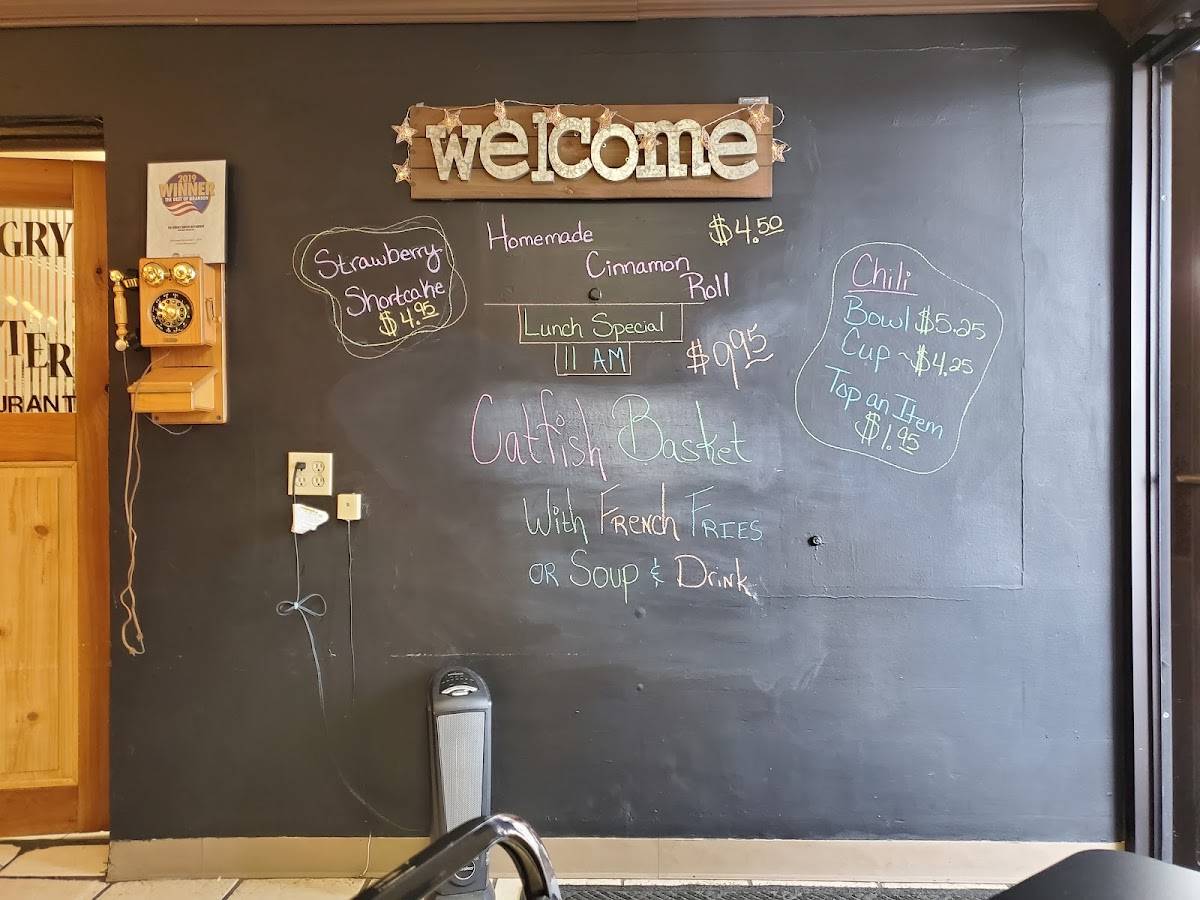 welcome
2019
WINNER
THE BEST OF BRANSON
GRY
TER
URANT
Strawberry
Shortcake
$4.95
Homemade $4.50
Cinnamon
Roll
Lunch Special
11 AM
$9.95
Catfish Basket
With French Fries
or Soup & Drink
Chili
Bowl $5.25
Cup ~ $4.25
Top an Item
$1.95